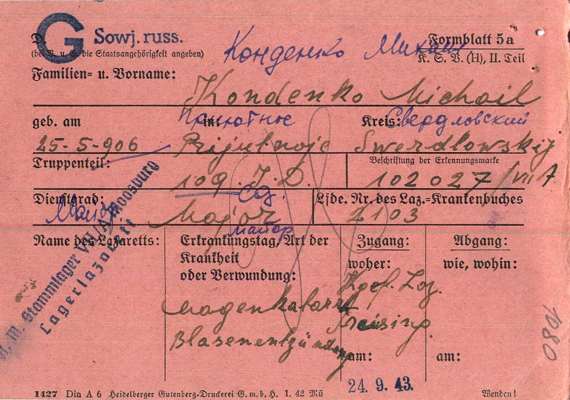 G Sowj. russ. Конденко Михаил Formblatt 5a
(bei R. u. G. die Staatsangehörigkeit angeben) K. S. V. (H), II. Teil
Familien= u. Vorname:
Kondenko Michail
geb. am in: Приютное Kreis: Свердловский
25-5-906 Prijutnoje Swerdlowskij
Truppenteil: Beschriftung der Erkennungsmarke
109. J.D. сд. 102027/VII A
Dienstgrad: Lfde. Nr. des Laz.=Krankenbuches
Майор Major 2103
майор
Name des Lazaretts: Erkrankungstag/Art der Krankheit oder Verwundung: Zugang: Abgang:
woher: wie, wohin:
M. Stammlager VII A Moosburg
Lagerlazarett
Magenkatarrh
Blasenentzündung
Kgof. Laz.
Freising
am: am:
24. 9. 43.
0801
1427 Din A 6 Heidelberger Gutenberg=Druckerei G. m. b. H. I. 42 Mü Wenden!